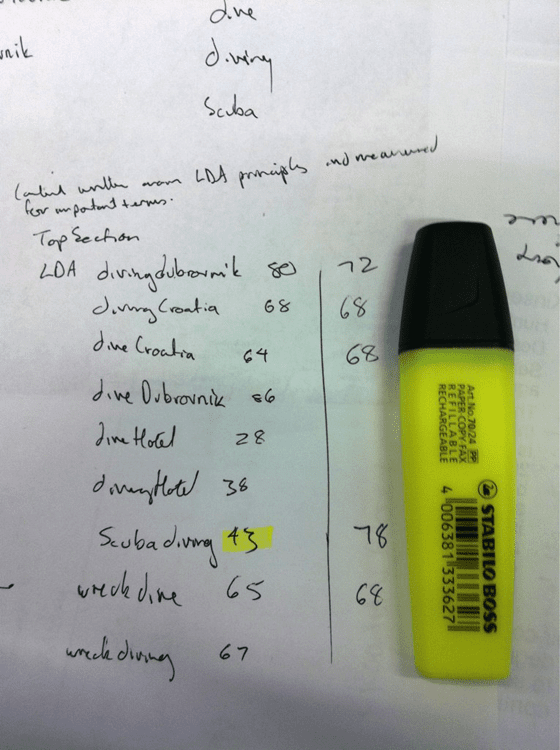 dive
nik
diving
Scuba
Content written around LDA principles and measured
for important terms.
Top Section
LDA diving dubrovnik 80 72
diving Croatia 68 68
dive Croatia 64 68
dive Dubrovnik 86
dive Hotel 28
diving Hotel 38
Scuba diving 43 78
wreck dive 65 68
wreck diving 67
Art. No. 70/24 PP
PAPER·COPY·FAX
REFILLABLE
RECHARGEABLE
STABILO BOSS
4 006381 333627